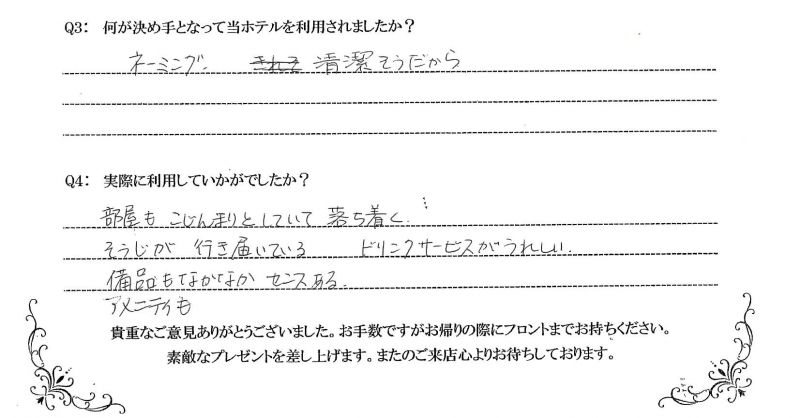 Q3: 何が決め手となって当ホテルを利用されましたか?
ネーミング. きれそ 清潔そうだから
Q4: 実際に利用していかがでしたか?
部屋も こじんまりとしていて 落ち着く.
そうじが 行き届いている ドリンクサービスがうれしい.
備品もなかなか センスある.
アメニティも
貴重なご意見ありがとうございました。お手数ですがお帰りの際にフロントまでお持ちください。
素敵なプレゼントを差し上げます。またのご来店心よりお待ちしております。